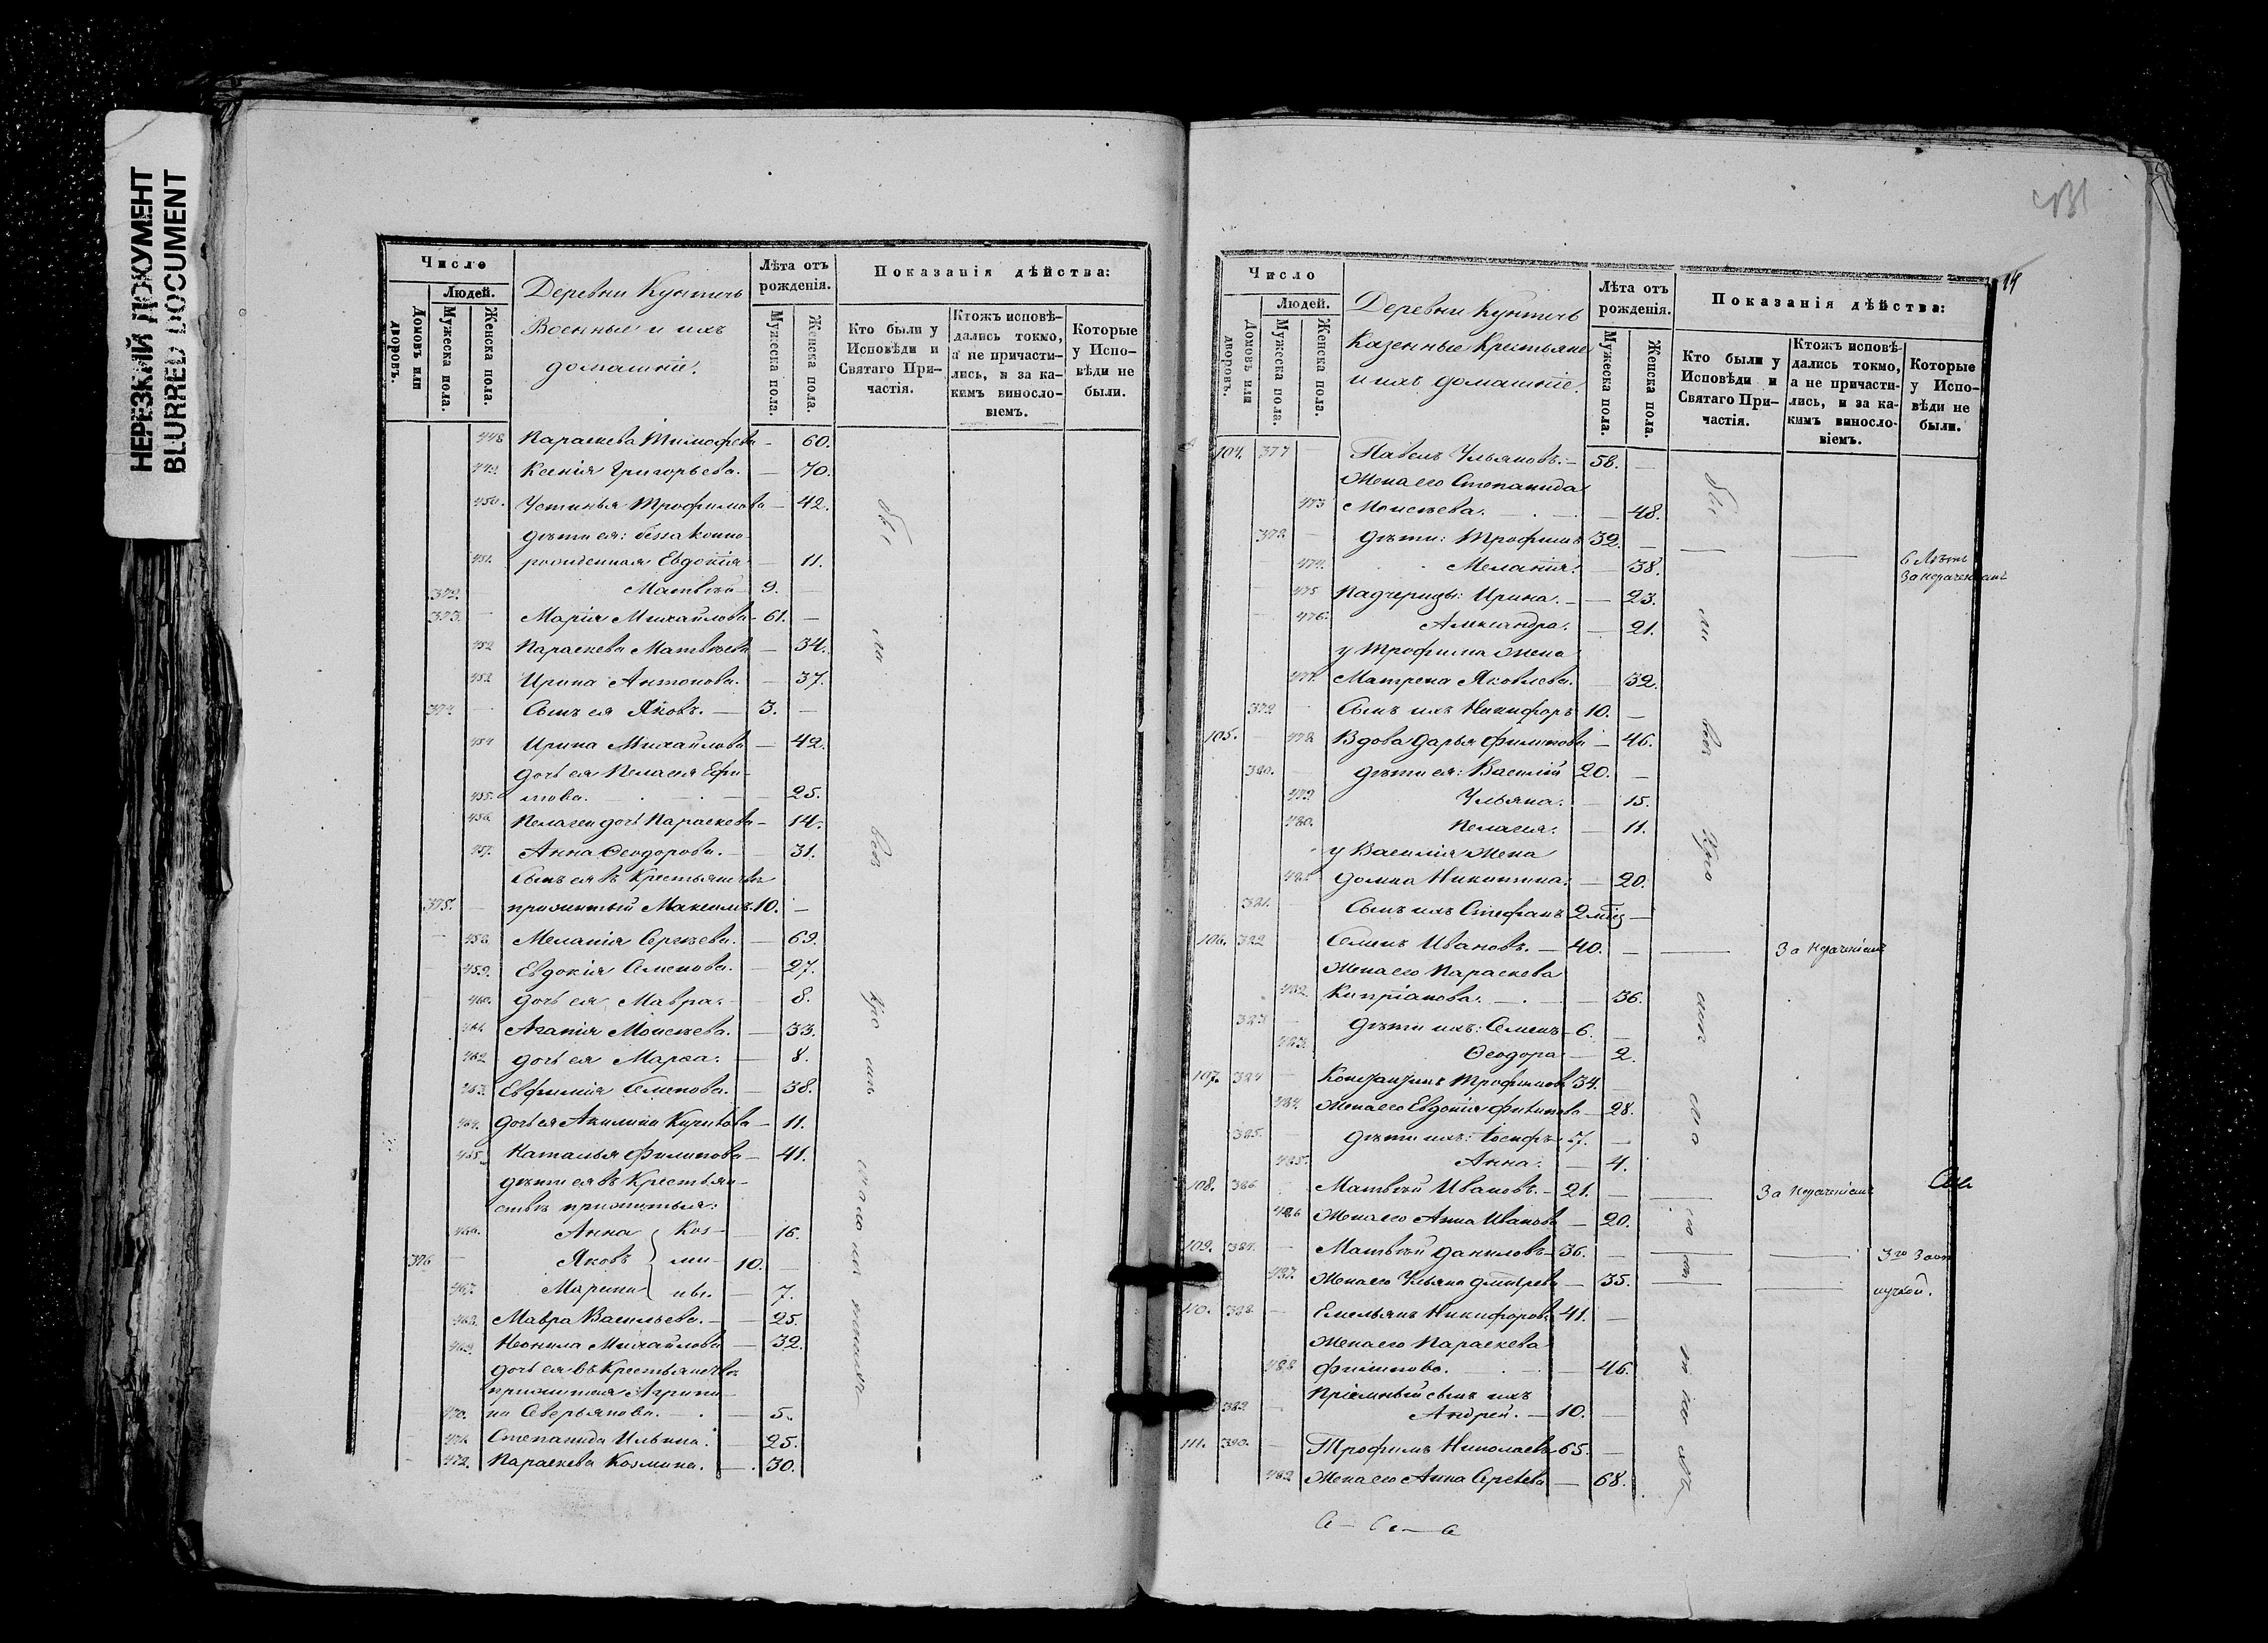 НЕРЕЗКИЙ ДОКУМЕНТ
BLURRED DOCUMENT
Число
Людей.
Домовъ или дворовъ.
Мужеска пола.
Женска пола.
Деревни Кунтичь
Военные и ихъ
домашніе.
Лѣта отъ рожденія.
Мужеска пола.
Женска пола.
Показанія дѣйства:
Кто были у Исповѣди и Святаго Причастія.
Ктожъ исповѣдались токмо, а не причастились, и за какимъ винословіемъ.
Которые у Исповѣди не были.
448 Параскева Тимофеева — 60.
449. Ксенія Григорьева. — 70.
450. Устинья Трофимова — 42.
дѣти ея: беззаконно-
451. рожденная Евдокія — 11.
372. Матвѣй 9. —
373. Марія Михайлова 61. —
452 Параскева Матвѣева — 34.
453 Ирина Антонова. — 37.
374. Сынъ ея Яковъ. — 3. —
454 Ирина Михайлова — 42.
дочь ея Пелагея Ефи-
455. мова. — 25.
456. Пелагеи дочь Параскева — 14.
457. Анна Ѳеодорова. — 31.
Сынъ ея въ Крестьянствѣ
375. прижитый Максимъ. 10. —
458. Меланія Сергѣева. — 69.
459. Евдокія Семенова. — 27.
460. дочь ея Мавра. — 8.
461. Агапія Моисѣева. — 33.
462. дочь ея Марѳа. — 8.
463. Евфимія Семенова. — 38.
464. дочь ея Акилина — 11.
465. Наталья Филипова — 41.
дѣти ея въ Крестьян-
ствѣ прижитыя:
466. Анна Коз- — 16.
376 Яковъ ми- 10. —
467. Марина ны. — 7.
468. Мавра Васильева. — 25.
469. Неонила Михайлова — 32.
дочь ея въ Крестьянствѣ
прижитая Агрипи-
470. на Северьянова. — 5.
471. Степанида Ильина. — 25.
472. Параскева Козмина. — 30.
431
Число
Людей.
Домовъ или дворовъ.
Мужеска пола.
Женска пола.
Деревни Кунтичь
Казенные Крестьяне
и ихъ домашніе.
Лѣта отъ рожденія.
Мужеска пола.
Женска пола.
Показанія дѣйства:
Кто были у Исповѣди и Святаго Причастія.
Ктожъ исповѣдались токмо, а не причастились, и за какимъ винословіемъ.
Которые у Исповѣди не были.
104. 377 — Павелъ Ульяновъ. — 58. —
Жена его Степанида
473 Моисѣева. — 48.
378 — дѣти: Трофимъ 32. — 6 Лѣтъ
За нераченіемъ
474. Меланія. — 38.
475 Падчерицы: Ирина. — 23.
476. Александра. — 21.
у Трофима жена
477. Матрена Яковлева. 32.
379 Сынъ ихъ Никифоръ 10. —
105. — 478 Вдова Дарья Филипова — 46.
380. дѣти ея: Василій 20. —
479 Ульяна. — 15.
480. Пелагея. — 11.
у Василія жена
481 Домна Никитина. — 20.
381. Сынъ ихъ Стефанъ 2 —
106. 382 Семенъ Ивановъ. — 40. — За нераченіемъ
Жена его Параскева
482 Кипріанова. — 36.
383 дѣти ихъ: Семенъ 6. —
483. Ѳеодора — 2.
107. 384 Трофимовъ 34. —
484. Жена его Евдокія Филипова — 28.
385. дѣти ихъ: Іосифъ 7. —
485. Анна. — 4.
108. 386 Матвѣй Ивановъ. — 21. — За нераченіемъ
486 Жена его Анна Иванова — 20.
109. 387. — Матвѣй Даниловъ 36. —
487. Жена его Ульяна — 35.
110. 388. — Емельянъ Никифоровъ 41. —
Жена его Параскева
488 Филипова. — 46.
Пріемный сынъ ихъ
389 — Андрей. — 10. —
111. 390. — Трофимъ Николаевъ 65. —
489 Жена его Анна Сергѣева — 68.